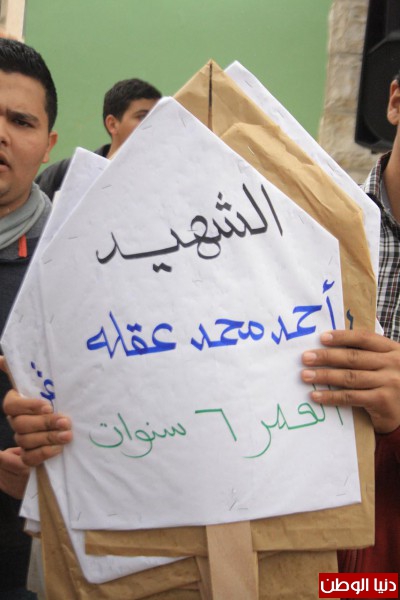 الشهيد
أحمد محمد عقله
العمر ٦ سنوات
دنيا الوطن